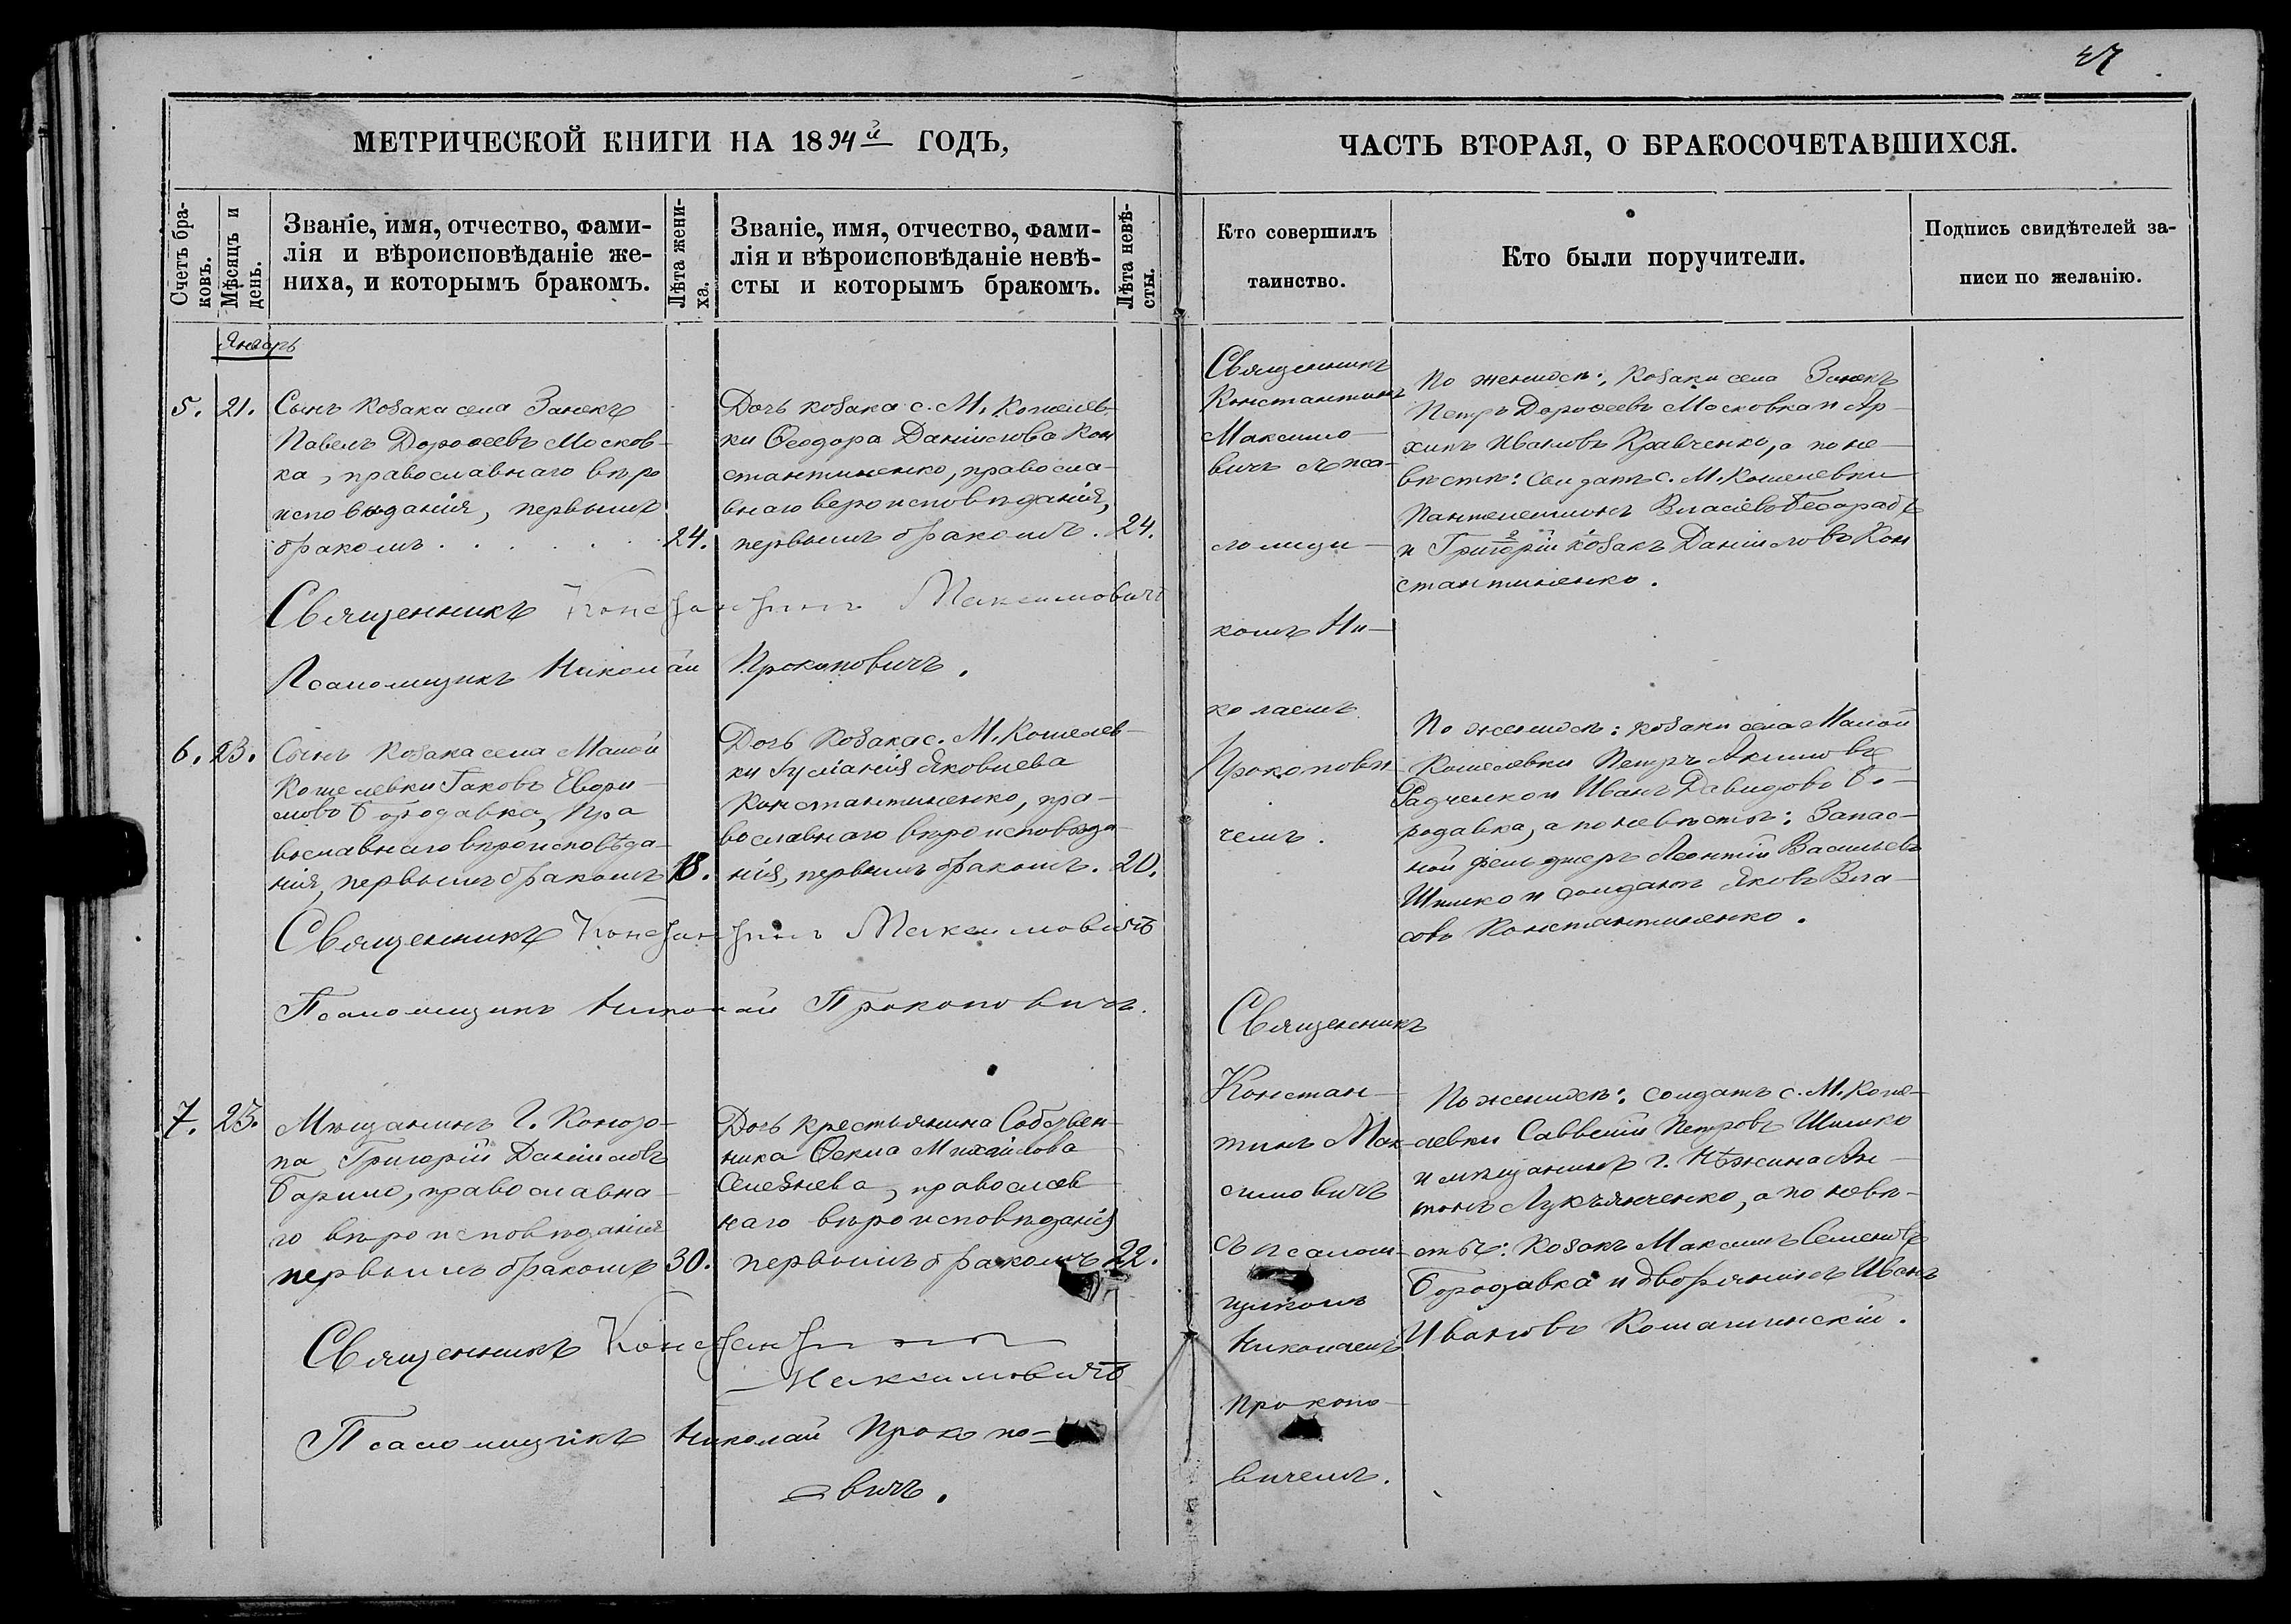 47
МЕТРИЧЕСКОЙ КНИГИ НА 1894й ГОДЪ,
ЧАСТЬ ВТОРАЯ, О БРАКОСОЧЕТАВШИХСЯ.
Счетъ бра-
ковъ.
Мѣсяцъ и
день.
Званіе, имя, отчество, фами-
лія и вѣроисповѣданіе же-
ниха, и которымъ бракомъ.
Лѣта жени-
ха.
Званіе, имя, отчество, фами-
лія и вѣроисповѣданіе невѣ-
сты и которымъ бракомъ.
Лѣта невѣ-
сты.
Кто совершилъ
таинство.
Кто были поручители.
Подпись свидѣтелей за-
писи по желанію.
Январь
5. 21.
Сынъ козака села Заньк
Павелъ Дорофеевъ Москов-
ка, православнаго вѣро
исповѣданія, первымъ
бракомъ . . . . . . 24.
Дочь козака с. М. Кошелев-
ки Феодора Даніилова Кон
стантиненко, правосла-
внаго вероисповѣданія,
первымъ бракомъ. 24.
Священникъ
Константинъ
Максимо-
вичъ
ломщи-
комъ Ни-
колаемъ
Прокопови-
чемъ.
По женихѣ: козаки села Заньк
Петръ Дорофеевъ Московка и Ар-
хипъ Ивановъ Кравченко, а по не-
вѣстѣ: солдатъ с. М. Кошелевки
Пантелеимонъ Власіевъ
и Григорій козакъ Даніиловъ Кон
стантиненко.
Священникъ Константинъ Максимовичъ
Псаломщикъ Николай Прокоповичъ.
6. 23.
Сынъ козака села Малой
Кошелевки Іаковъ
мовъ Бородавка, Пра
вославнаго вѣроисповѣда-
нія, первымъ бракомъ 18.
Дочь козака с. М. Кошелев-
ки Іуліанія Яковлева
Константиненко, пра-
вославнаго вѣроисповѣда-
нія, первымъ бракомъ. 20.
По женихѣ: козаки села Малой
Кошелевки Петръ Акимовъ
Радченко и Иванъ Давидовъ Бо-
родавка, а по невѣстѣ: Запас-
ной фельдшеръ Леонтій Васильевъ
Шилко и солдатъ Яковъ Вла-
совъ Константиненко.
Священникъ Константинъ Максимовичъ
Псаломщикъ Николай Прокоповичъ.
7. 23.
Мѣщанинъ г. Коното-
па, Григорій Даніиловъ
Барило, православна-
го вѣроисповѣданія
первымъ бракомъ 30.
Дочь крестьянина Собствен-
ника Фекла Михайлова
православ-
наго вѣроисповѣданія
первымъ бракомъ 22.
Священникъ
Констан-
тинъ Мак-
симовичъ
съ псалом-
щикомъ
Николаемъ
Прокопо-
вичемъ.
По женихѣ: солдатъ с. М. Коше-
левки Савветій Петровъ Шилко
и мѣщанинъ г. Нѣжина Ан-
тонъ Лукъянченко, а по невѣ-
стѣ: козакъ Максимъ Семеновъ
Бородавка и дворянинъ Иванъ
Ивановъ
Священникъ Константинъ
Максимовичъ
Псаломщикъ Николай Прокопо-
вичъ.